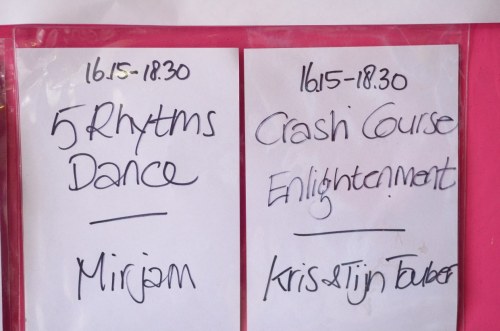 16.15-18.30
5 Rhytms
Dance
Mirjam
16.15-18.30
Crash Course
Enlightenment
Kris & Tijn Touber